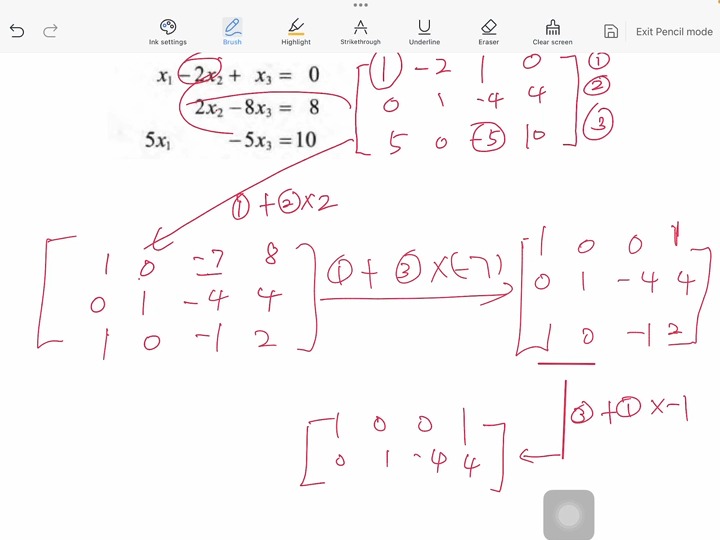 Ink settings Brush Highlight Strikethrough Underline Eraser Clear screen Exit Pencil mode
x₁ − 2x₂ + x₃ = 0
2x₂ − 8x₃ = 8
5x₁ − 5x₃ = 10
1 -2 1 0 ①
0 1 -4 4 ②
5 0 -5 10 ③
① + ② x 2
1 0 -7 8
0 1 -4 4
1 0 -1 2
① + ③ x (-7)
1 0 0 1
0 1 -4 4
1 0 -1 2
③ + ① x -1
1 0 0 1
0 1 -4 4